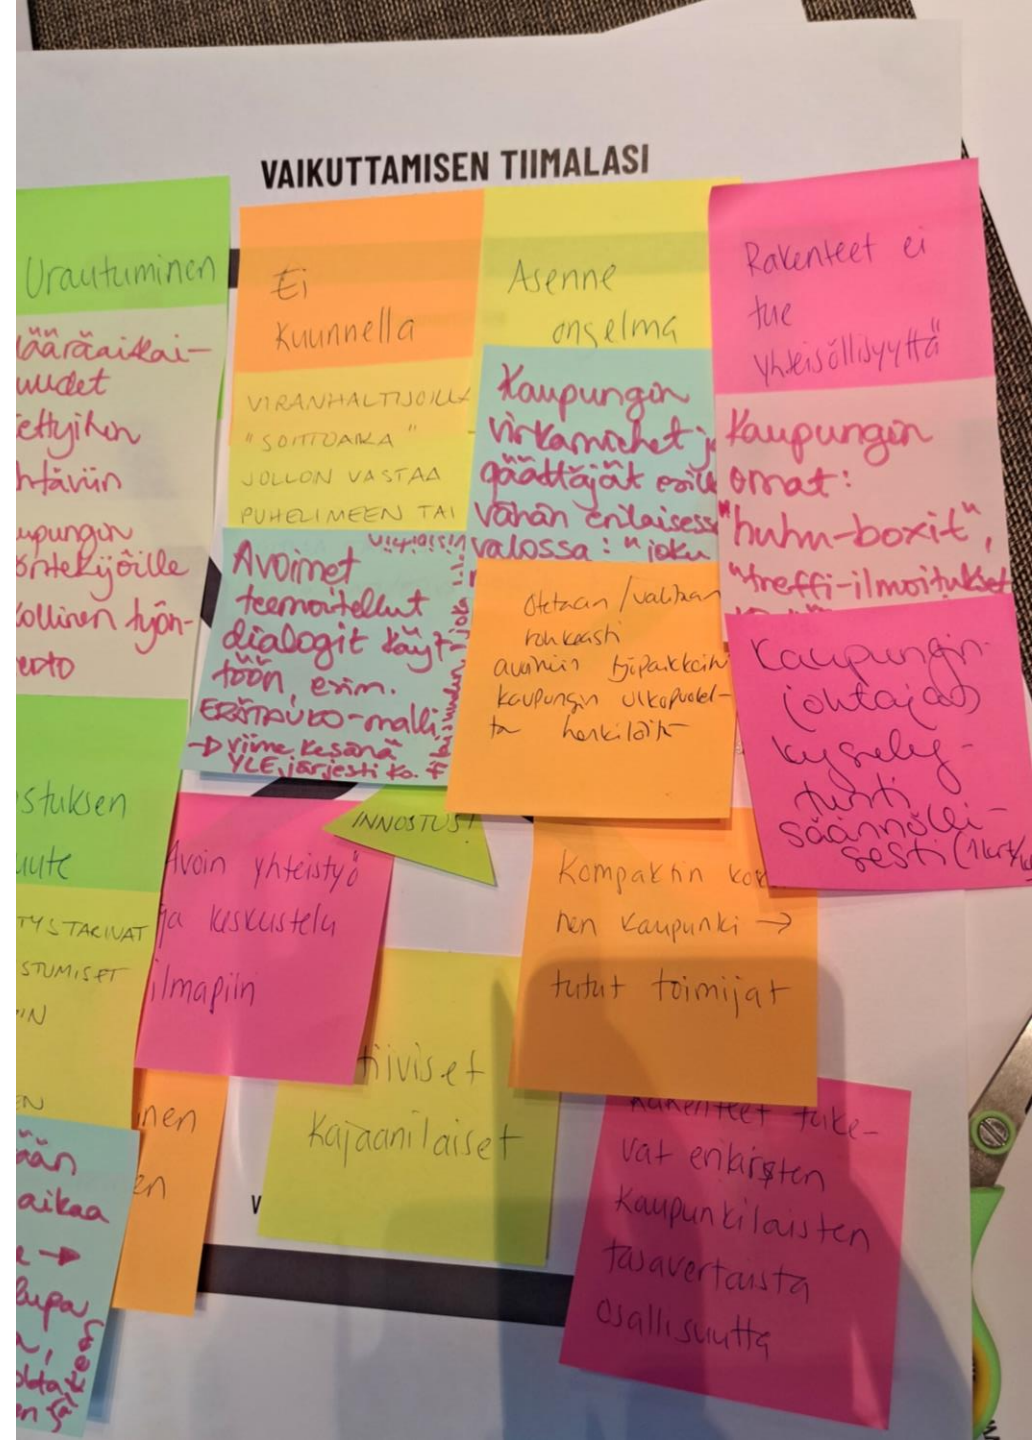 VAIKUTTAMISEN TIIMALASI
Urautuminen
määräaikai-
ettyihin
kaupungin
työntekijöille
Ei
kuunnella
VIRANHALTIJOILLA
"SOITTOAIKA"
JOLLON VASTAA
PUHELIMEEN TAI
Avoimet
teemoitellut
dialogit käyt-
töön, esim.
ERÄTAUKO-malli
→ viime kesänä
YLE järjesti ko.
Asenne
ongelma
Kaupungin
virkamiehet j
päättäjät esille
vähän erilaisessa
valossa: "joku
Otetaan / valitaan
rohkeasti
avoimiin työpaikkoihin
kaupungin ulkopuolel-
ta henkilöitä
Rakenteet ei
tue
yhteisöllisyyttä
Kaupungin
omat:
"huhu-boxit",
"treffi-ilmoitukset
Kaupungin-
johtaja(t)
kysely-
tunti
säännölli-
sesti (1krt/
stuksen
uute
TYSTARIVAT
STUMISET
IN
EN
INNOSTUS!
Avoin yhteistyö
ja keskustelu
ilmapiiri
Kompaktin ko
nen kaupunki →
tutut toimijat
tiiviset
Kajaanilaiset
Rakenteet tuke-
vat erilaisten
kaupunkilaisten
tasavertaista
osallisuutta
nen
en
ään
aikaa
lupa